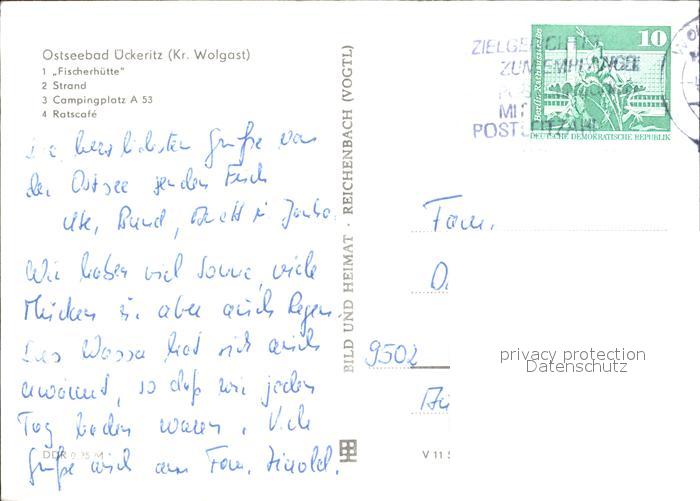 Ostseebad Ückeritz (Kr. Wolgast)
1 „Fischerhütte"
2 Strand
3 Campingplatz A 53
4 Ratscafé
Die herzlichsten Grüße von
der Ostsee senden Euch
Ute, Bernd,
Wir haben viel Sonne, viele
Mücken u. aber auch Regen.
Das Wasser hat sich auch
erwärmt, so daß wir jeden
Tag baden waren. Viele
Grüße auch an Fam.
DDR 0,25 M
BILD UND HEIMAT · REICHENBACH (VOGTL)
V 11 5
10
Berlin Rathausstraße
DEUTSCHE DEMOKRATISCHE REPUBLIK
ZUM EMPFÄNGER
MIT
POSTLEITZAHL
Fam.
9502
privacy protection
Datenschutz